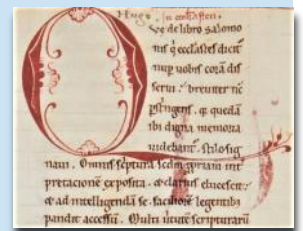 Hugo. in eccłasten.
Ve de libro salomo
nis q̇ eccłastes dicit
nup uobis corā dis
serui. breuiter nc̄
pstringens. q quedā
ibi digna memoria
uidebant. stilo sig
naui. Omnis scptura scdm ꝓpriam int
pretacionē exposita. & clarius elucescit.
& ad intelligendā se. faciliorē legentibꝫ
pandit accessū. Multi uirtutē scripturarū